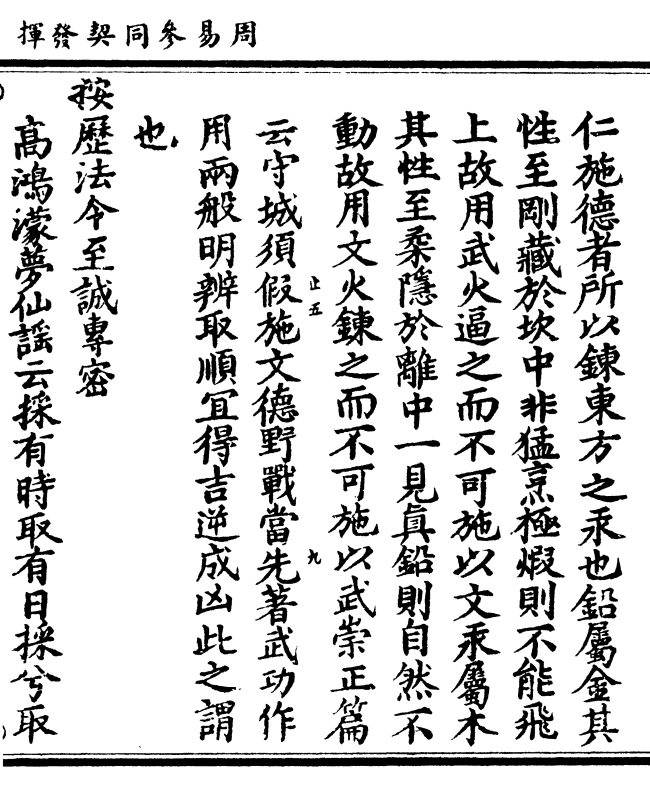 周易參同契發揮
仁施德者所以鍊東方之汞也鉛屬金其
性至剛藏於坎中非猛烹極煆則不能飛
上故用武火逼之而不可施以文汞屬木
其性至柔隱於離中一見眞鉛則自然不
動故用文火鍊之而不可施以武崇正篇
云守城須假施文德野戰當先著武功作
止五
九
用兩般明辨取順冝得吉逆成凶此之謂
也
按歷法令至誠專密
高鴻濛夢仙謡云採有時取有日採兮取